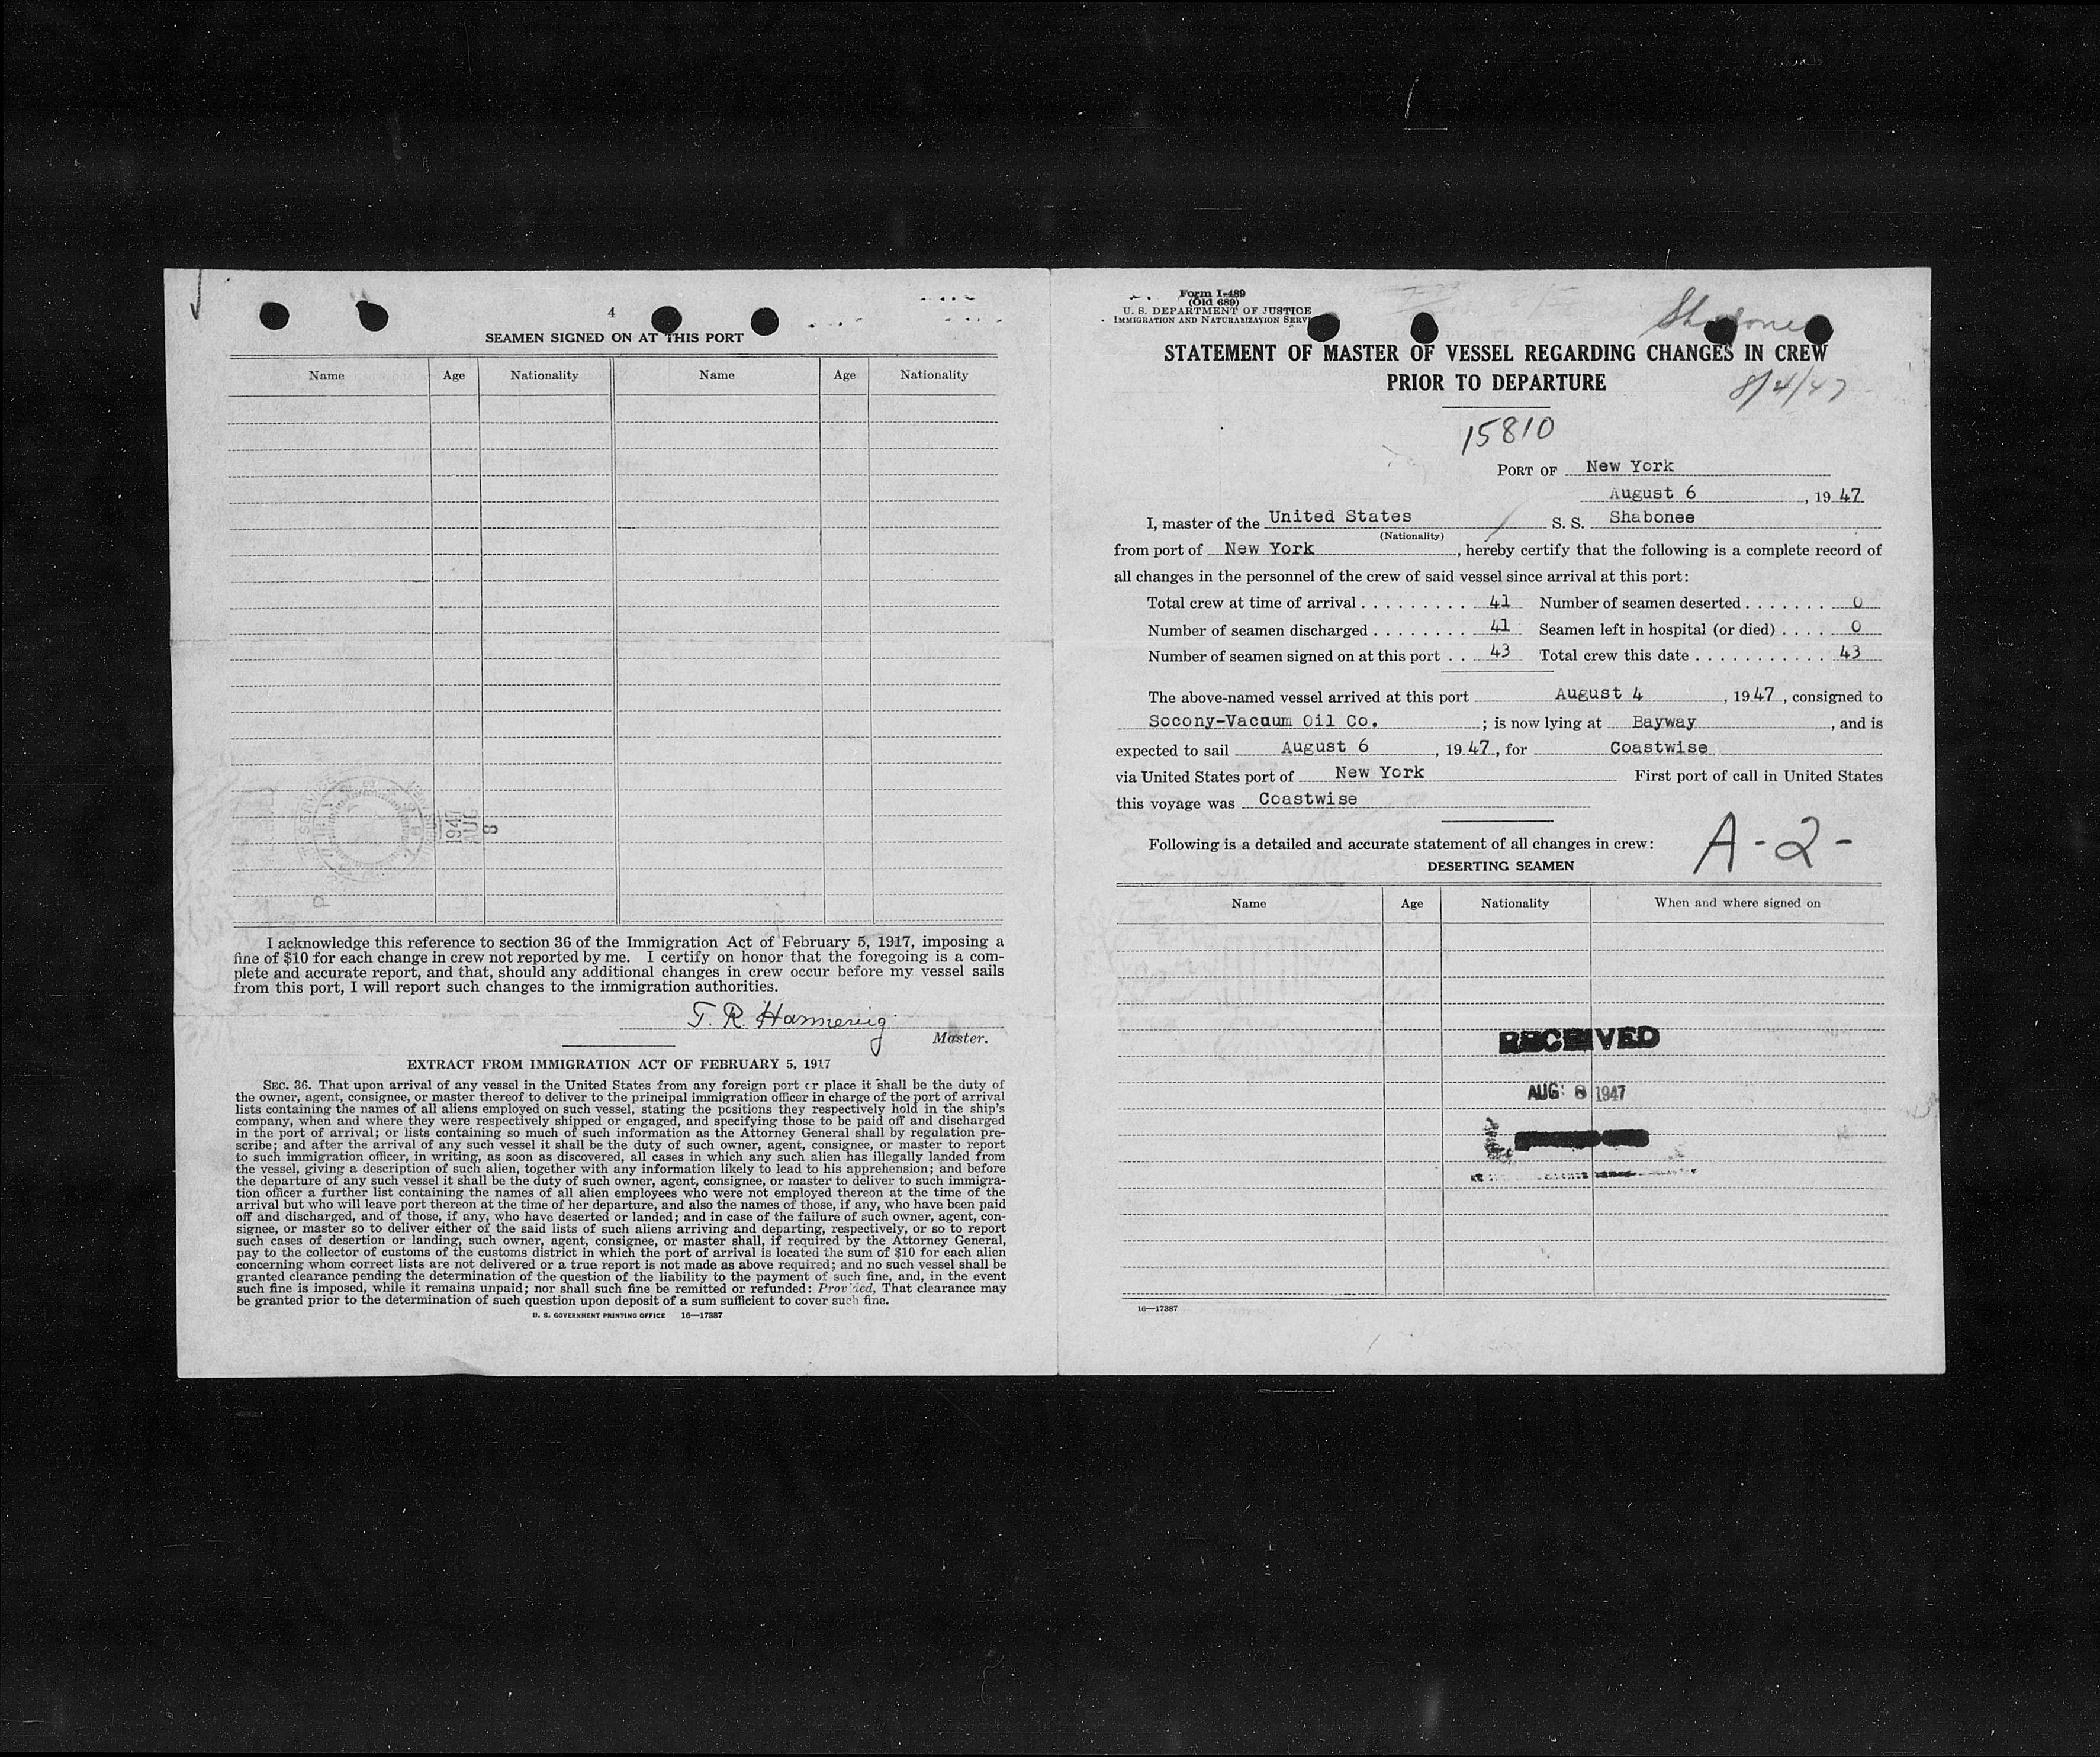 4
SEAMEN SIGNED ON AT THIS PORT
Name Age Nationality Name Age Nationality
1947
AUG
8
I acknowledge this reference to section 36 of the Immigration Act of February 5, 1917, imposing a
fine of $10 for each change in crew not reported by me. I certify on honor that the foregoing is a com-
plete and accurate report, and that, should any additional changes in crew occur before my vessel sails
from this port, I will report such changes to the immigration authorities.
T. R. Hannevig
Master.
EXTRACT FROM IMMIGRATION ACT OF FEBRUARY 5, 1917
SEC. 36. That upon arrival of any vessel in the United States from any foreign port or place it shall be the duty of
the owner, agent, consignee, or master thereof to deliver to the principal immigration officer in charge of the port of arrival
lists containing the names of all aliens employed on such vessel, stating the positions they respectively hold in the ship's
company, when and where they were respectively shipped or engaged, and specifying those to be paid off and discharged
in the port of arrival; or lists containing so much of such information as the Attorney General shall by regulation pre-
scribe; and after the arrival of any such vessel it shall be the duty of such owner, agent, consignee, or master to report
to such immigration officer, in writing, as soon as discovered, all cases in which any such alien has illegally landed from
the vessel, giving a description of such alien, together with any information likely to lead to his apprehension; and before
the departure of any such vessel it shall be the duty of such owner, agent, consignee, or master to deliver to such immigra-
tion officer a further list containing the names of all alien employees who were not employed thereon at the time of the
arrival but who will leave port thereon at the time of her departure, and also the names of those, if any, who have been paid
off and discharged, and of those, if any, who have deserted or landed; and in case of the failure of such owner, agent, con-
signee, or master so to deliver either of the said lists of such aliens arriving and departing, respectively, or so to report
such cases of desertion or landing, such owner, agent, consignee, or master shall, if required by the Attorney General,
pay to the collector of customs of the customs district in which the port of arrival is located the sum of $10 for each alien
concerning whom correct lists are not delivered or a true report is not made as above required; and no such vessel shall be
granted clearance pending the determination of the question of the liability to the payment of such fine, and, in the event
such fine is imposed, while it remains unpaid; nor shall such fine be remitted or refunded: Provided, That clearance may
be granted prior to the determination of such question upon deposit of a sum sufficient to cover such fine.
U. S. GOVERNMENT PRINTING OFFICE 16—17387
Form I-489
(Old 689)
U. S. DEPARTMENT OF JUSTICE
IMMIGRATION AND NATURALIZATION SERVI
Shabonee
STATEMENT OF MASTER OF VESSEL REGARDING CHANGES IN CREW
PRIOR TO DEPARTURE
8/4/47
15810
PORT OF New York
August 6, 1947
I, master of the United States S. S. Shabonee
(Nationality)
from port of New York, hereby certify that the following is a complete record of
all changes in the personnel of the crew of said vessel since arrival at this port:
Total crew at time of arrival . . . . . . . . . 41 Number of seamen deserted . . . . . . . 0
Number of seamen discharged . . . . . . . . 41 Seamen left in hospital (or died) . . . . 0
Number of seamen signed on at this port . . 43 Total crew this date . . . . . . . . . . . 43
The above-named vessel arrived at this port August 4, 1947, consigned to
Socony-Vacuum Oil Co.; is now lying at Bayway, and is
expected to sail August 6, 1947, for Coastwise
via United States port of New York First port of call in United States
this voyage was Coastwise
Following is a detailed and accurate statement of all changes in crew:
A-2-
DESERTING SEAMEN
Name Age Nationality When and where signed on
RECEIVED
AUG 8 1947
16—17387